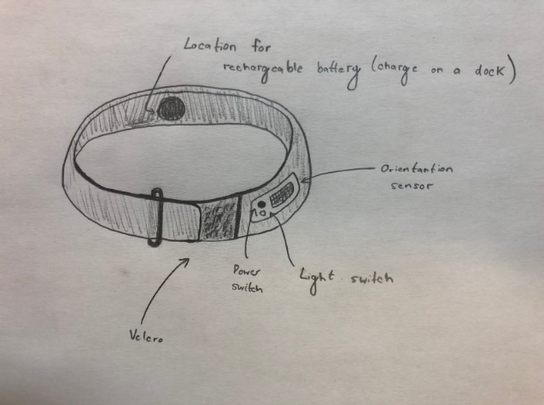 Location for
rechargeable battery (charge on a dock)
Orientantion
sensor
Power
switch
Light switch
Velcro